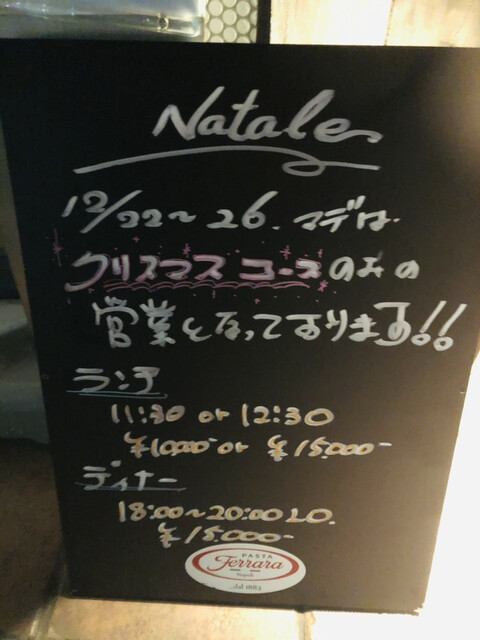 Natale
12/22〜26.マデは
クリスマスコースのみの
営業となっております!!
ランチ
11:30 or 12:30
¥10000- or ¥15.000-
ディナー
18:00〜20:00 LO.
¥15.000-
PASTA
Ferrara
Napoli
...dal 1883